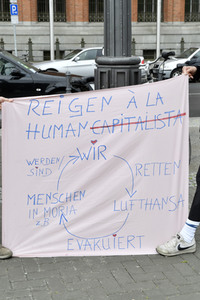 REIGEN À LA
HUMAN CAPITALISTA
WIR
WERDEN
SIND
RETTEN
MENSCHEN
IN MORIA
z.B.
LUFTHANSA
EVAKUIERT